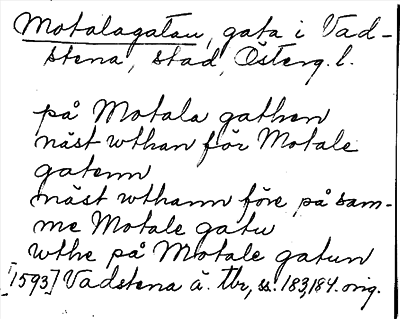 Motalagatan, gata i Vad-
stena, stad, Österg. l.
på Motala gathen
näst wthan för Motale
gatenn
näst wthann före på sam-
me Motale gatu
wthe på Motale gatun
[1593] Vadstena ä. tbr, ss. 183, 184. orig.